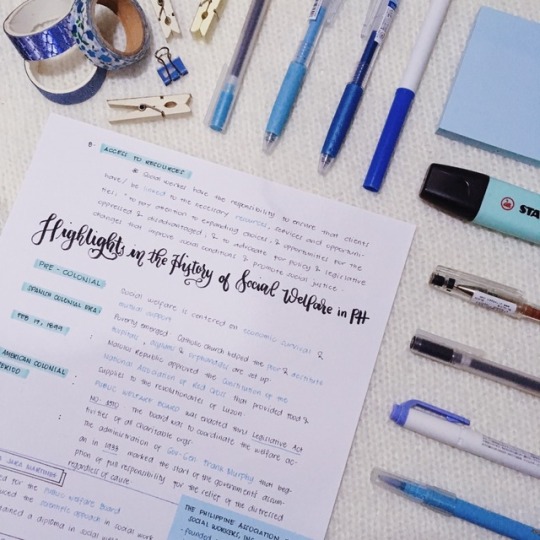 B. ACCESS TO RESOURCES
* Social workers have the responsibility to ensure that clients
have/ be linked to the necessary resources, services and opportuni-
ties; * to pay attention to expanding choices, & opportunities for the
oppressed & disadvantaged; & to advocate for policy & legislative
changes that improve social conditions & promote social justice.
Highlights in the History of Social Welfare in PH
PRE-COLONIAL : Social welfare is centered on economic survival &
mutual support
SPANISH COLONIAL ERA : Poverty emerged. Catholic church helped the poor & destitute
hospitals, asylums & orphanages are set-up.
FEB. 17, 1899 : Malolos Republic approved the Constitution of the
National Association of Red Cross that provided food &
supplies to the revolutionaries of Luzon.
AMERICAN COLONIAL PERIOD : PUBLIC WELFARE BOARD was enacted thru Legislative Act
No. The board was to coordinate the welfare ac-
tivities of all charitable orgs.
: the administration of Gov-Gen Frank Murphy that beg-
an in 1933 marked the start of the government's assum-
ption of full responsibility for the relief of the distressed
regardless of cause.
for the Public Welfare Board
the scientific approach in social work
a diploma in social work
THE PHILIPPINE ASSOCIATION
SOCIAL WORKERS, INC.
- founded
STA